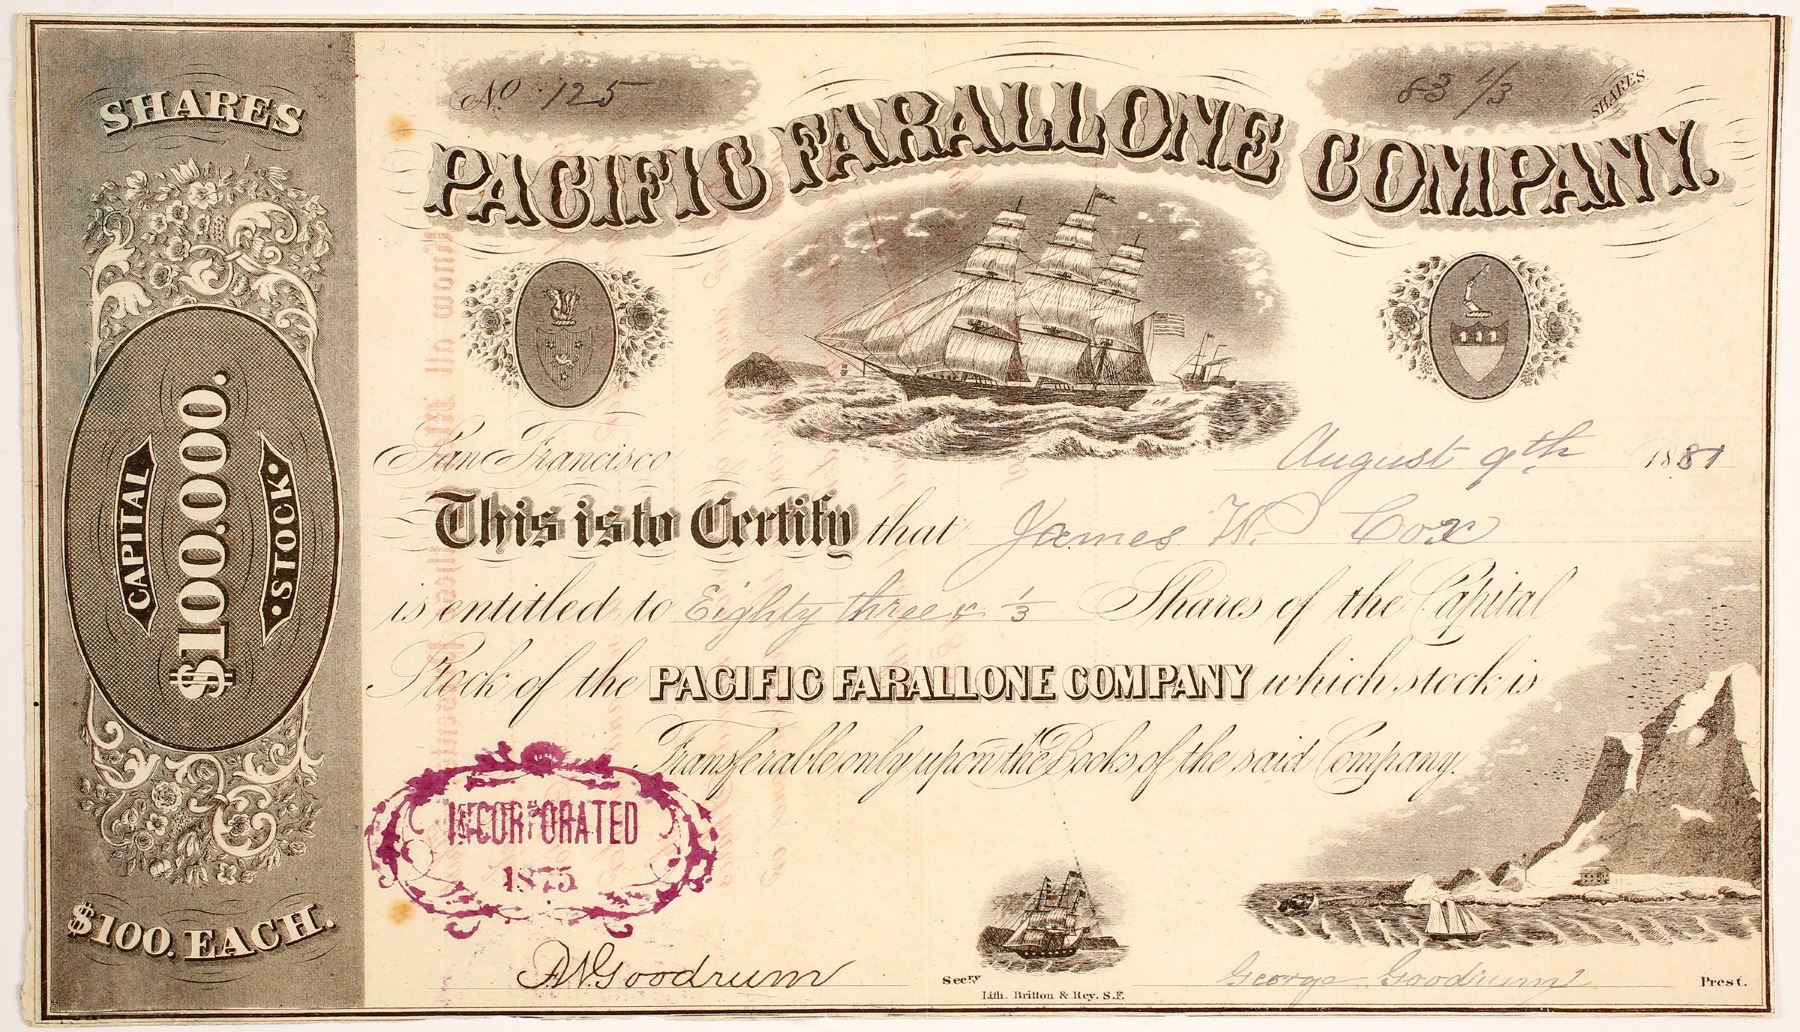 SHARES
CAPITAL
$100.000.
STOCK.
$100. EACH.
No. 125
83 1/3 SHARES
PACIFIC FARALLONE COMPANY.
San Francisco August 9th 1881
This is to Certify that James W. Cox
is entitled to Eighty three & 1/3 Shares of the Capital
Stock of the PACIFIC FARALLONE COMPANY which stock is
Transferable only upon the Books of the said Company.
INCORPORATED
1875
Goodrum Secry
George Goodrum Prest.
Lith. Britton & Rey. S.F.